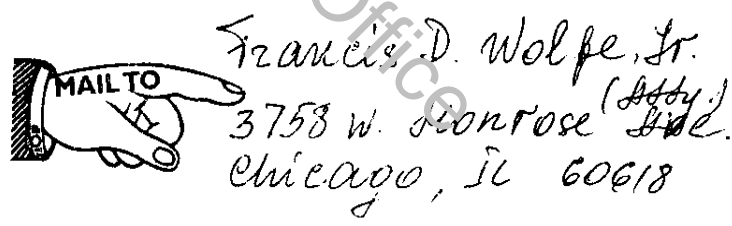 Office
MAIL TO
Francis D. Wolfe, Jr.
(Atty.)
3758 W. Monrose Ave.
Chicago, IL 60618